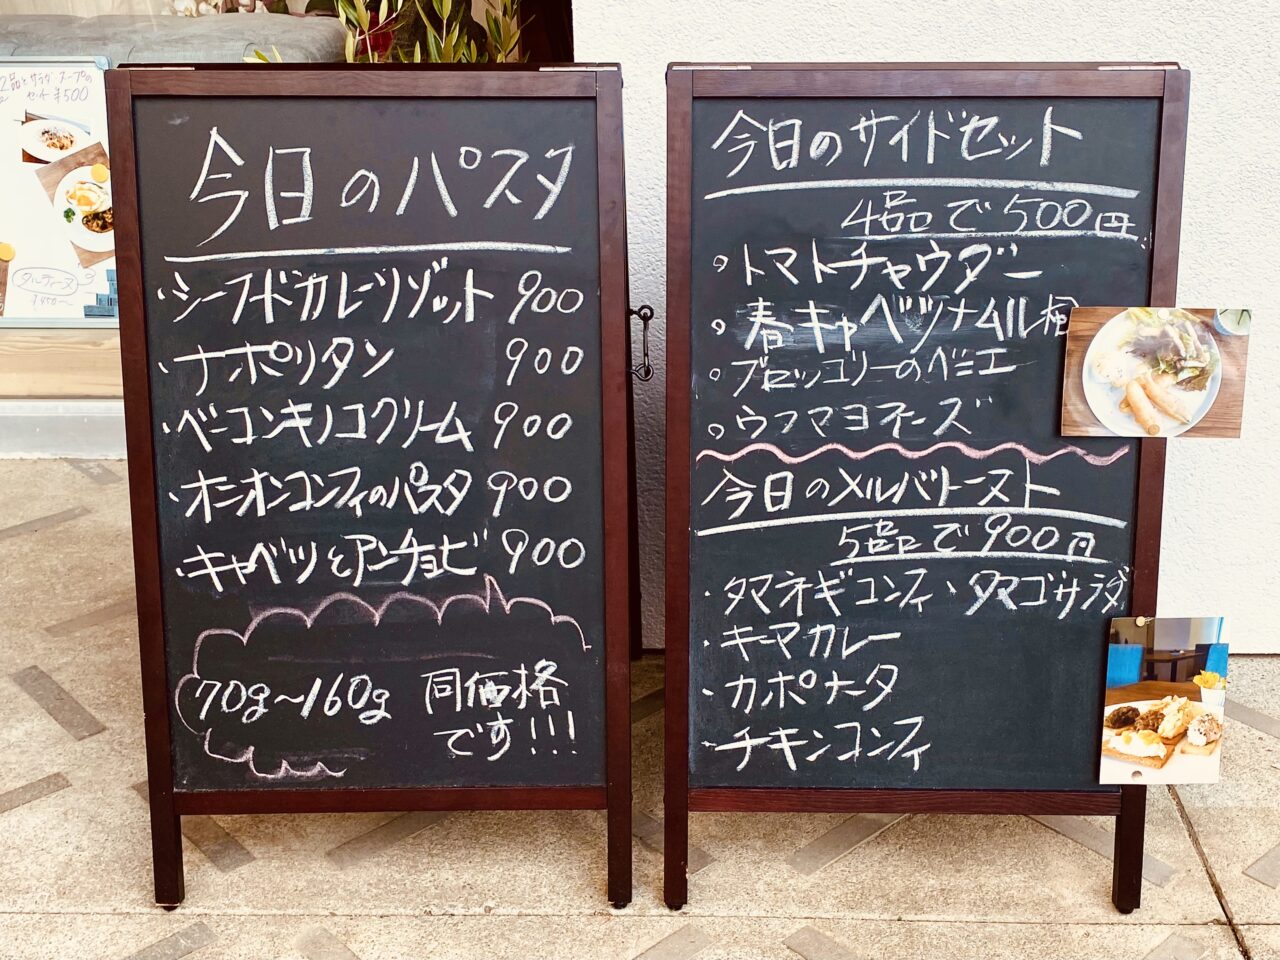 今日のパスタ
・シーフードカレーリゾット 900
・ナポリタン 900
・ベーコンキノコクリーム 900
・オニオンコンフィのパスタ 900
・キャベツとアンチョビ 900
70g〜160g 同価格
です!!!
今日のサイドセット
4品で500円
。トマトチャウダー
。春キャベツナムル風
。ブロッコリーのペーニエ
。ウフマヨネーズ
今日のメルバトースト
5品で900円
・タマネギコンフィ、タマゴサラダ
・キーマカレー
・カポナータ
・チキンコンフィ
2品とサラダ スープの
セット ¥500
タルティーヌ